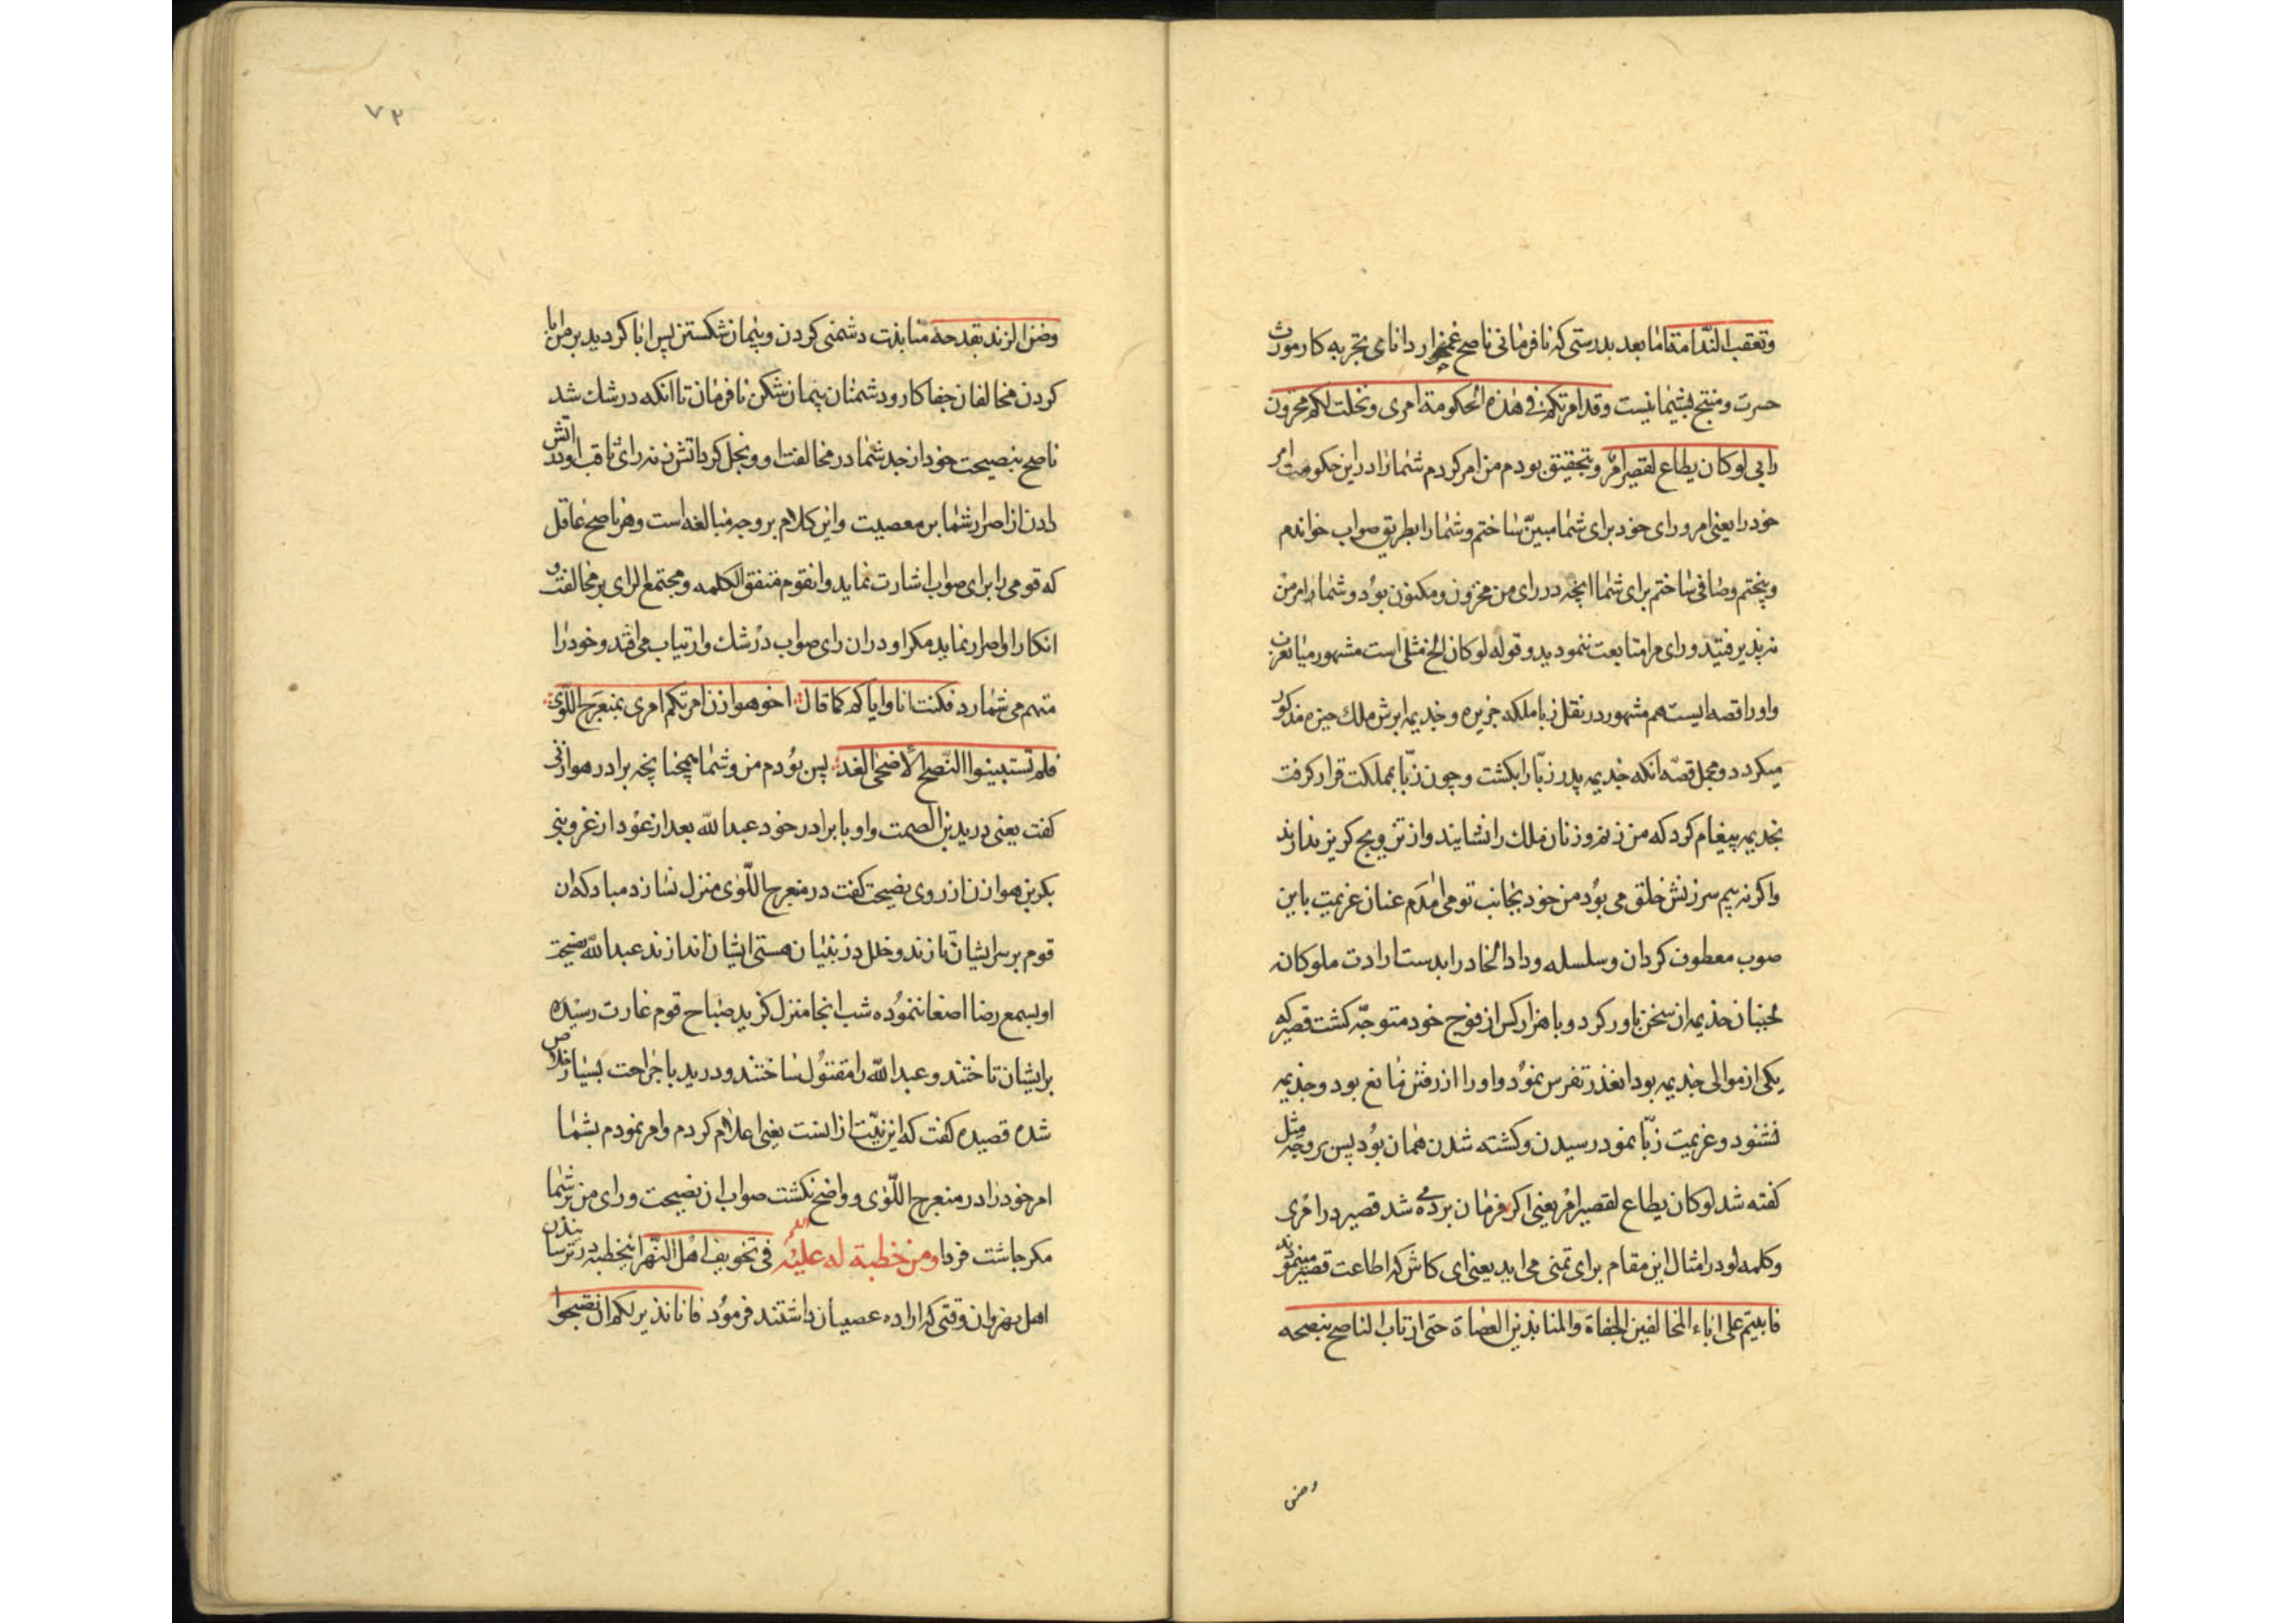 وتعقب النّدامة امّا بعد بدرستی که نافرمانی ناصح غمخوار دانای تجربه کار مورث
حسرت و منتج پشیمانیست وقد امرتکم فی هذه الحکومة امری ونخلت لکم مخزون
رایی لو کان یطاع لقصیر امر و بتحقیق بودم من امر کردم شما را در این حکومت امر
خود را یعنی امر و رای خود برای شما مبیّن ساختم و شما را بطریق صواب خواندم
و پختم و صافی ساختم برای شما انچه در رای من مخزون و مکنون بود و شما را امر من
نپذیرفتید و رای مرا متابعت ننمودید و قوله لو کان الخ مثلی است مشهور میان عرب
و او را قصه ایست هم مشهور در نقل زبا ملکه جزیره و خذیمه ابرش ملک حیره مذکور
میکردد و مجمل قصّه انکه خذیمه پدر زبّا را بکشت و چون زبّا بمملکت قرار کرفت
بخذیمه پیغام کرد که من زنم و زنان ملک را نشایند و از تزویج کریز ندارند
و اکر نه بیم سرزنش خلق می بود من خود بجانب تو می امدم عنان عزیمت باین
صوب معطوف کردان و سلسله وداد اتحاد را بدست ارادت ملوکانه
بجنبان خذیمه ان سخن باور کرد و با هزار کس از فوج خود متوجّه کشت قصیر که
یکی از موالی خذیمه بود انغدر تفرس نمود و او را از رفتن مانع بود و خذیمه
نشنود و عزیمت زبّا نمود رسیدن و کشته شدن همان بود پس بر وجه مثل
کفته شد لو کان یطاع لقصیر امر یعنی اکر فرمان برده می شد قصیر در امری
و کلمه لو در امثال این مقام برای تمنی می اید یعنی ای کاش که اطاعت قصیر مینمودند
فابیتم علی اباء المخالفین الجفاة والمنابذین العصاة حتی ارتاب الناصح بنصحه
وضن
۷۳
وضن الزند بقدحه منابذت دشمنی کردن و پیمان شکستن پس ابا کردید بر من ابا
کردن مخالفان جفا کار و دشمنان پیمان شکن نافرمان تا انکه در شک شد
ناصح بنصیحت خود از جد شما در مخالفت او و بخل کرد اتش زنه رای ثاقب او بدادن اتش
دادن از اصرار شما بر معصیت و این کلام بر وجه مبالغه است و هر ناصح عاقل
که قومی را برای صواب اشارت نماید و انقوم متفق الکلمه و مجتمع الرای بر مخالفت و
انکار او اصرار نماید مکر او در ان رای صواب در شک و ارتیاب می افتد و خود را
متهم می شمارد فکنت انا وایاکم کما قال اخو هوازن امرتکم امری بمنعرج اللّوی
فلم تستبینوا النّصح الّا ضحی الغد پس بودم من و شما همچنانچه برادر هوازنی
کفت یعنی درید بن الصمت و او با برادر خود عبدالله بعد از عود از غزو بنی
بکر بن هوازن از روی نصیحت کفت در منعرج اللّوی منزل نسازد مباد که ان
قوم بر سر ایشان تازند و خلل در بنیان هستی ایشان اندازند عبدالله نصیحت
او بسمع رضا اصغا ننموده شب انجا منزل کزید صباح قوم غارت رسیده
بر ایشان تاختند و عبدالله را مقتول ساختند و درید با جراحت بسیار خلاص
شده قصیده کفت که این بیت از انست یعنی اعلام کردم و امر نمودم بشما
امر خود را در منعرج اللّوی و واضح نکشت صواب ان نصیحت و رای من بر شما
مکر چاشت فردا ومن خطبة له علیه السلم فی تخویف اهل النّهر اینخطبه در ترسانیدن
اهل نهروان وقتی که اراده عصیان داشتند فرمود فانا نذیر لکم ان تصبحوا